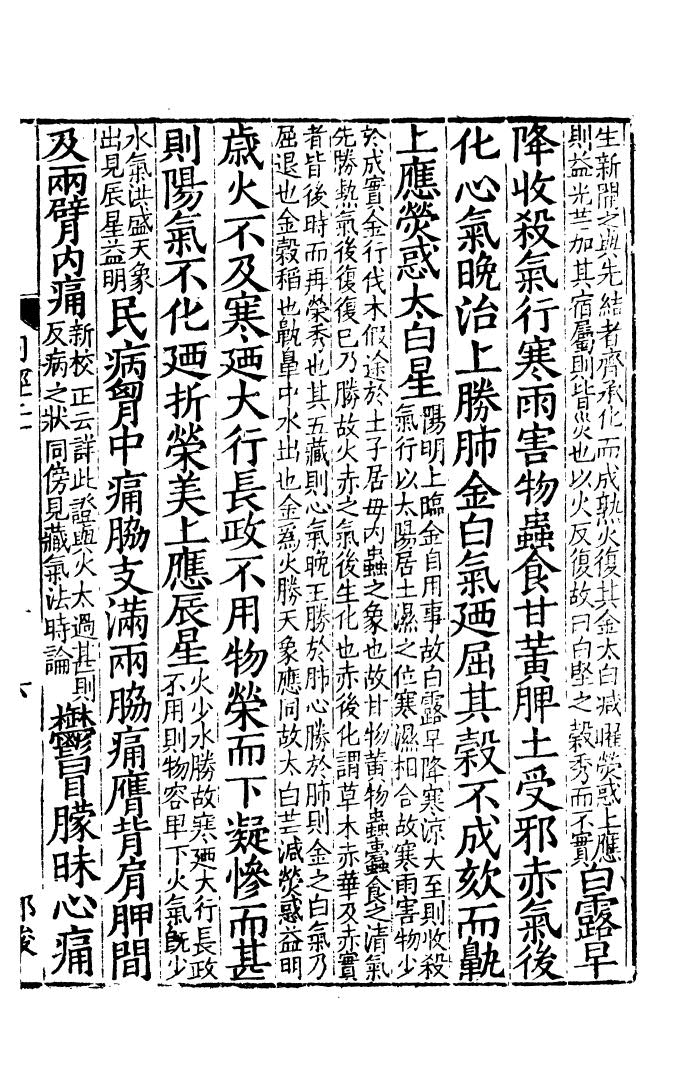 生新開之與先結者齊承化而成熟火復其金太白減曜熒惑上應
則益光芒加其宿屬則皆災也以火反復故曰白堅之穀秀而不實
白露早
降收殺氣行寒雨害物蟲食甘黃脾土受邪赤氣後
化心氣晚治上勝肺金白氣廼屈其穀不成欬而鼽
上應熒惑太白星
陽明上臨金自用事故白露早降寒涼大至則收殺
氣行以太陽居土濕之位寒濕相合故寒雨害物少
於成實金行伐木假途於土子居母內蟲之象也故甘物黃物蟲蠹食之清氣
先勝熱氣後復復已乃勝故火赤之氣後生化也赤後化謂草木赤華及赤實
者皆後時而再榮秀也其五藏則心氣晚王勝於肺心勝於肺則金之白氣乃
屈退也金穀稻也鼽鼻中水出也金為火勝天象應同故太白芒減熒惑益明
歲火不及寒廼大行長政不用物榮而下凝慘而甚
則陽氣不化廼折榮美上應辰星
火少水勝故寒廼大行長政
不用則物容卑下火氣旣少
水氣洪盛天象
出見辰星益明
民病胷中痛脇支滿兩脇痛膺背肩胛間
及兩臂內痛
新校正云詳此證與火太過甚則
反病之狀同傍見藏氣法時論
鬱冒朦昧心痛